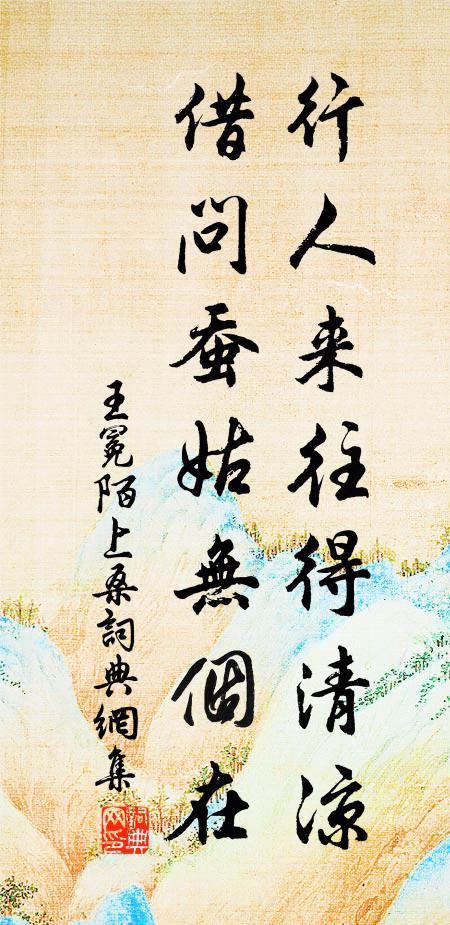 行人来往得清涼
借問蚕姑無個在
王冕陌上桑詞典網集
詞典